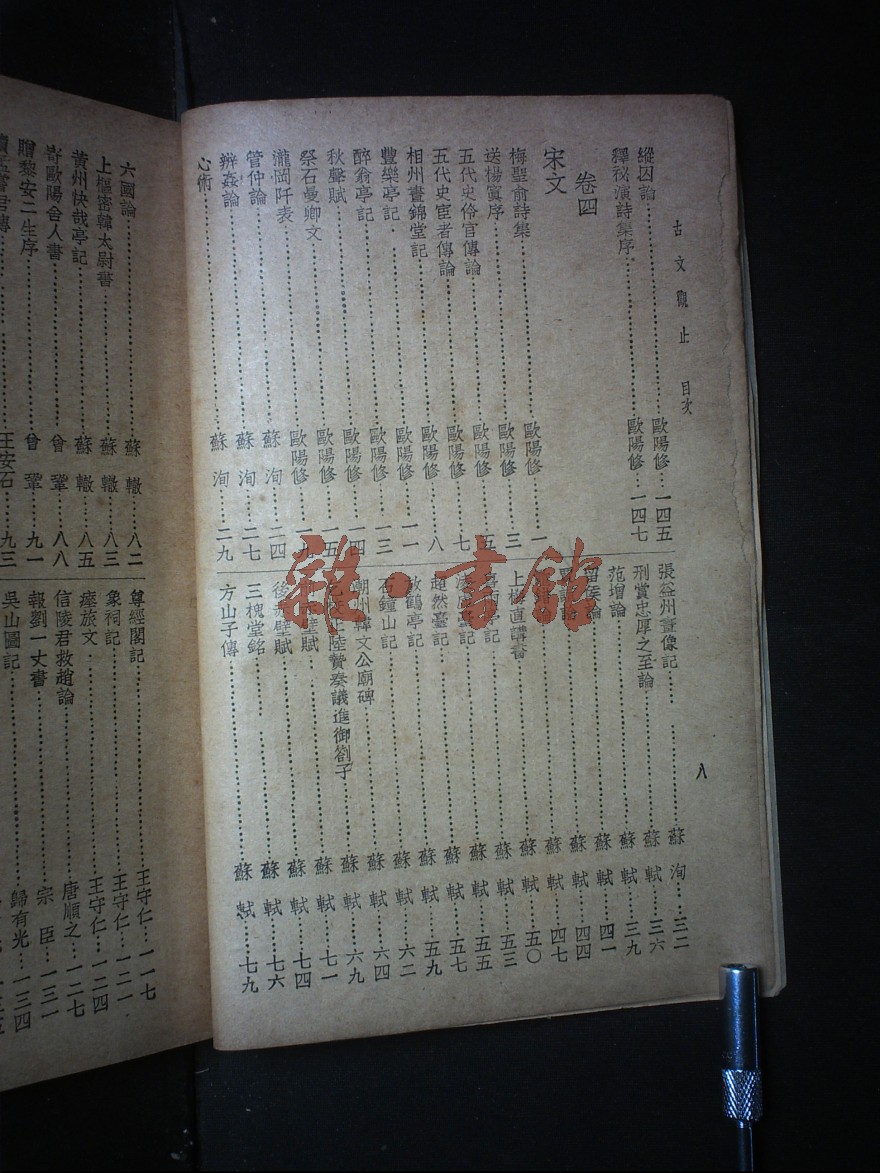 古文觀止 目次
八
縱囚論 歐陽修 一四五
釋祕演詩集序 歐陽修 一四七
卷四
宋文
梅聖俞詩集 歐陽修 一
送楊寘序 歐陽修 三
五代史伶官傳論 歐陽修 五
五代史宦者傳論 歐陽修 七
相州晝錦堂記 歐陽修 八
豐樂亭記 歐陽修 一一
醉翁亭記 歐陽修 一三
秋聲賦 歐陽修 一四
祭石曼卿文 歐陽修 一五
瀧岡阡表 歐陽修 一九
管仲論 蘇洵 二四
辨姦論 蘇洵 二七
心術 蘇洵 二九
張益州畫像記 蘇洵 三二
刑賞忠厚之至論 蘇軾 三六
范增論 蘇軾 三九
留侯論 蘇軾 四一
論 蘇軾 四四
蘇軾 四七
上梅直講書 蘇軾 五〇
亭記 蘇軾 五三
亭記 蘇軾 五五
超然臺記 蘇軾 五七
放鶴亭記 蘇軾 五九
石鐘山記 蘇軾 六二
潮州韓文公廟碑 蘇軾 六四
陸贄奏議進御劄子 蘇軾 六九
壁賦 蘇軾 七一
後赤壁賦 蘇軾 七四
三槐堂銘 蘇軾 七六
方山子傳 蘇軾 七九
六國論 蘇轍 八二
上樞密韓太尉書 蘇轍 八三
黃州快哉亭記 蘇轍 八五
寄歐陽舍人書 曾鞏 八八
贈黎安二生序 曾鞏 九一
王安石 九三
尊經閣記 王守仁 一一七
象祠記 王守仁 一二一
瘞旅文 王守仁 一二四
信陵君救趙論 唐順之 一二七
報劉一丈書 宗臣 一三一
吳山圖記 歸有光 一三四
雜·書館